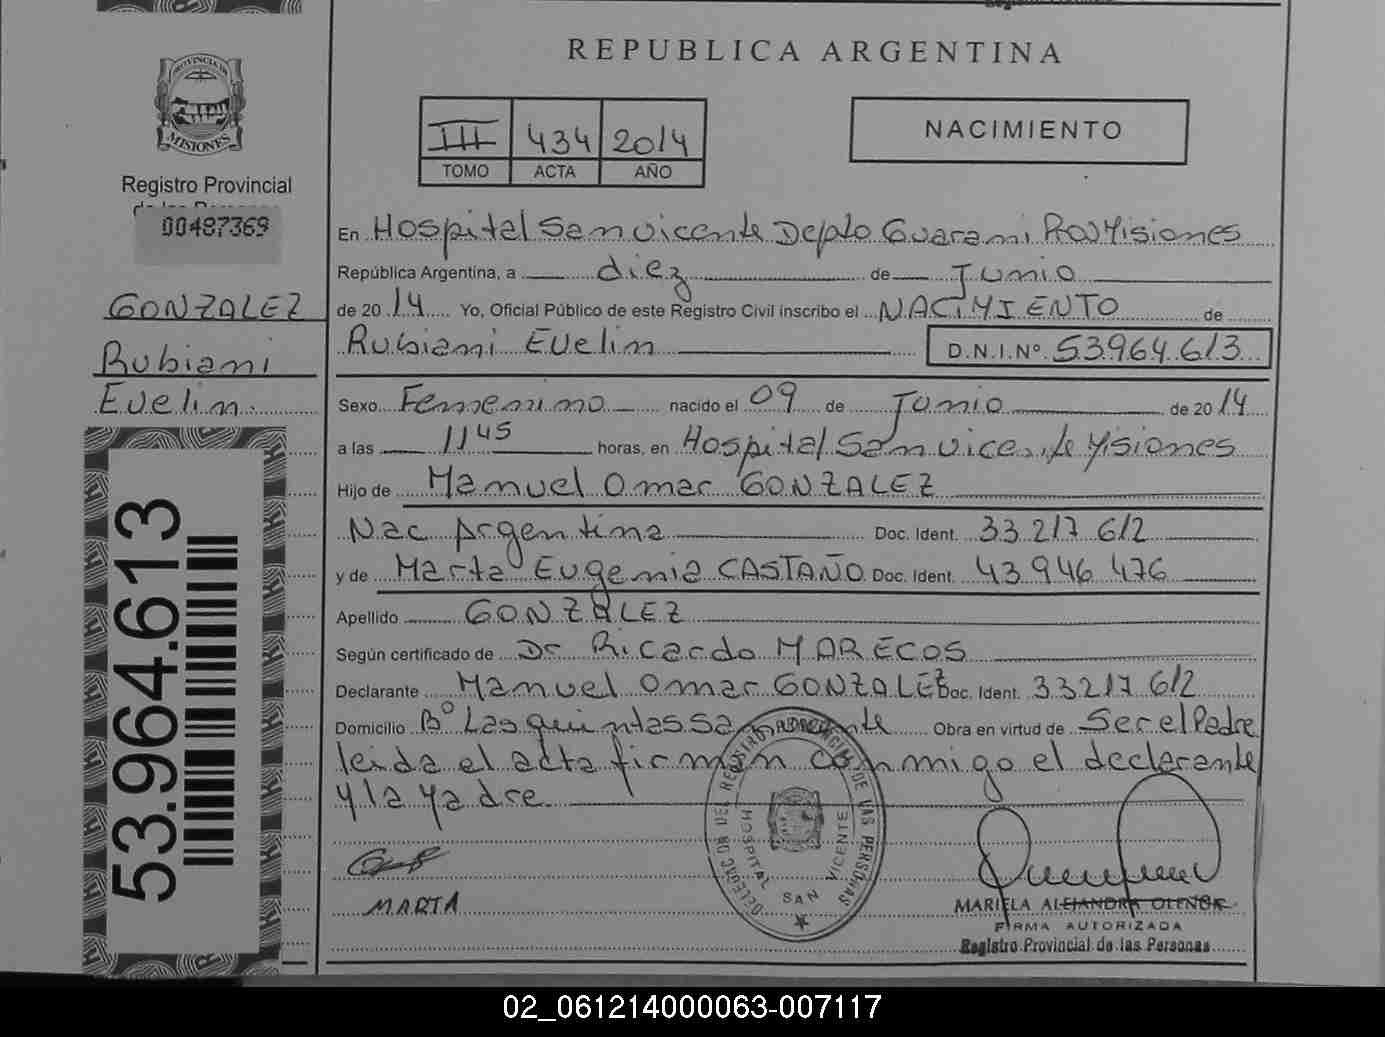 REPUBLICA ARGENTINA
PROVINCIA DE
MISIONES
Registro Provincial
de las Personas
00487369
GONZALEZ
Rubiami
Evelin
53.964.613
III 434 2014
TOMO ACTA AÑO
NACIMIENTO
En Hospital San vicente Depto Guarami Prov Misiones
República Argentina, a diez de Junio
de 2014 Yo, Oficial Público de este Registro Civil inscribo el NACIMIENTO de
Rubiami Evelin D.N.I.Nº 53.964.613
Sexo Femenino nacido el 09 de Junio de 2014
a las 11 45 horas, en Hospital San vicente Misiones
Hijo de Manuel Omar GONZALEZ
Nac Argentina Doc. Ident. 33 217 612
y de Marta Eugenia CASTAÑO Doc. Ident. 43 946 476
Apellido GONZALEZ
Según certificado de Dr Ricardo MARECOS
Declarante Manuel Omar GONZALEZ Doc. Ident. 33217 612
Domicilio Bº Las quintas San vicente Obra en virtud de Ser el Padre
leida el acta firman conmigo el declarante
y la Madre
DELEGACION DEL REGISTRO PROVINCIAL DE LAS PERSONAS
HOSPITAL SAN VICENTE
MARTA
MARIELA ALEJANDRA
FIRMA AUTORIZADA
Registro Provincial de las Personas
02_061214000063-007117